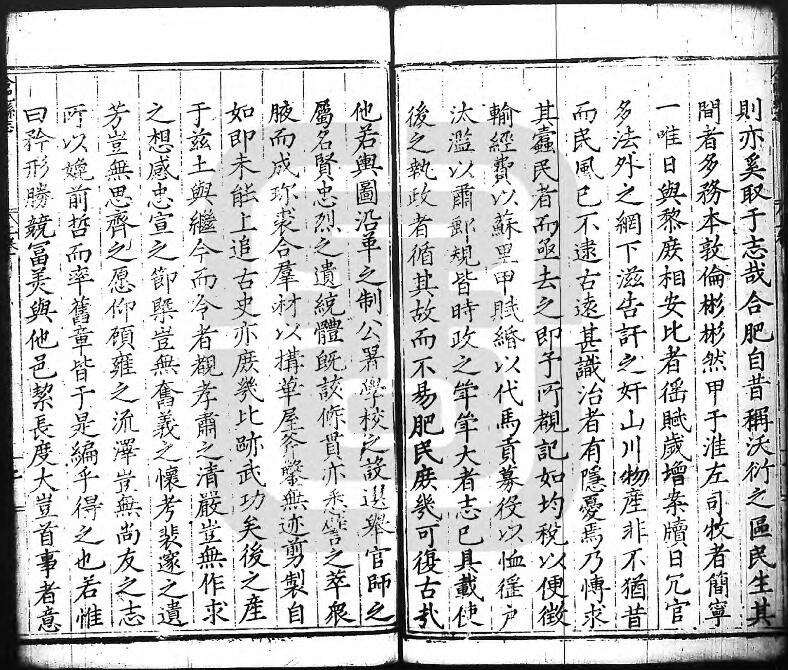 則亦奚取于志哉合肥自昔稱沃衍之區民生其
間者多務本敦倫彬彬然甲于淮左司牧者簡寧
一唯日與黎庶相安比者徭賦歲增案牘日冗官
多法外之網下滋告訐之奸山川物産非不猶昔
而民風已不逮古遠甚識治者有隱憂焉乃慱求
其蠹民者而亟去之即予所覩記如均稅以便徵
輸經費以蘇里甲賦緡以代馬貢募役以恤徭戶
汰濫以肅郵規皆時政之犖犖大者志已具載使
後之執政者循其故而不易肥民庶幾可復古哉
他若輿圖沿革之制公署學校之設選舉官師之
屬名賢忠烈之遺統體既該條貫亦悉譬之萃衆
腋而成珎裘合羣材以搆華屋斧鑿無迹剪製自
如即未能上追古史亦庶幾比跡武功矣後之産
于兹土與繼今而令者覩孝肅之清嚴豈無作求
之想感忠宣之節槩豈無奮義之懷考裴邃之遺
芳豈無思齊之愿仰顧雍之流澤豈無尚友之志
所以媲前哲而率舊章皆于是編乎得之也若惟
曰矜形勝競冨美與他邑絜長度大豈首事者意